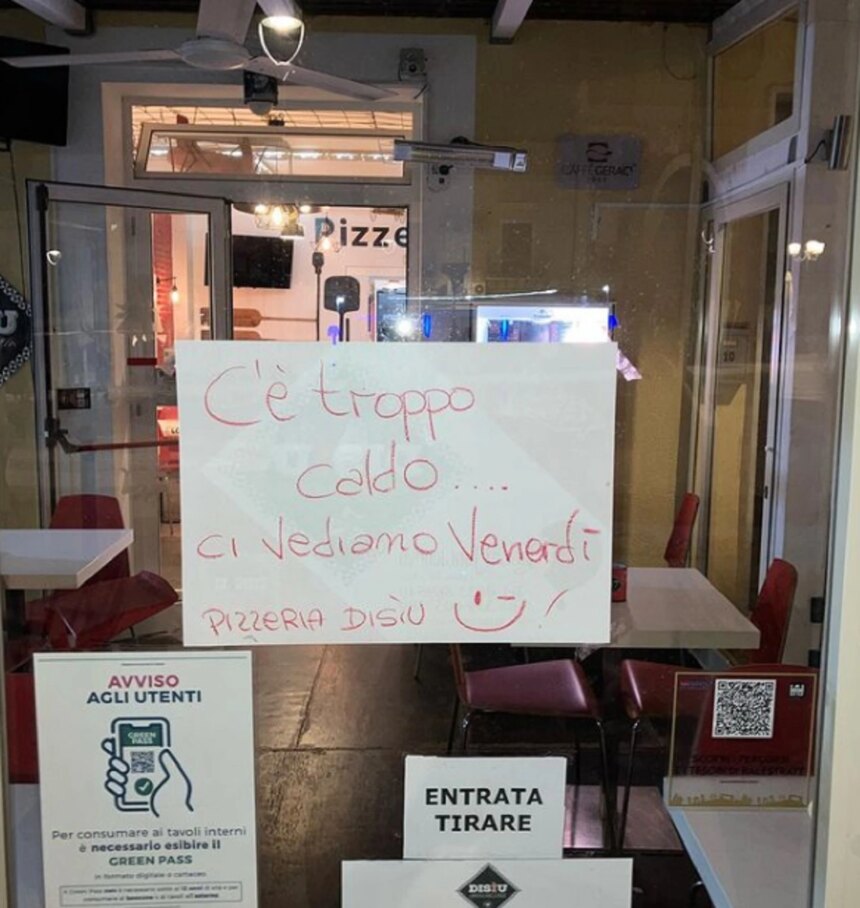 Pizze
CAFFÈ GERACI
C'è troppo
caldo....
ci vediamo Venerdì
PIZZERIA DISÌU !
AVVISO
AGLI UTENTI
GREEN
PASS
Per consumare ai tavoli interni
è necessario esibire il
GREEN PASS
in formato digitale o cartaceo
ENTRATA
TIRARE
DISÌU